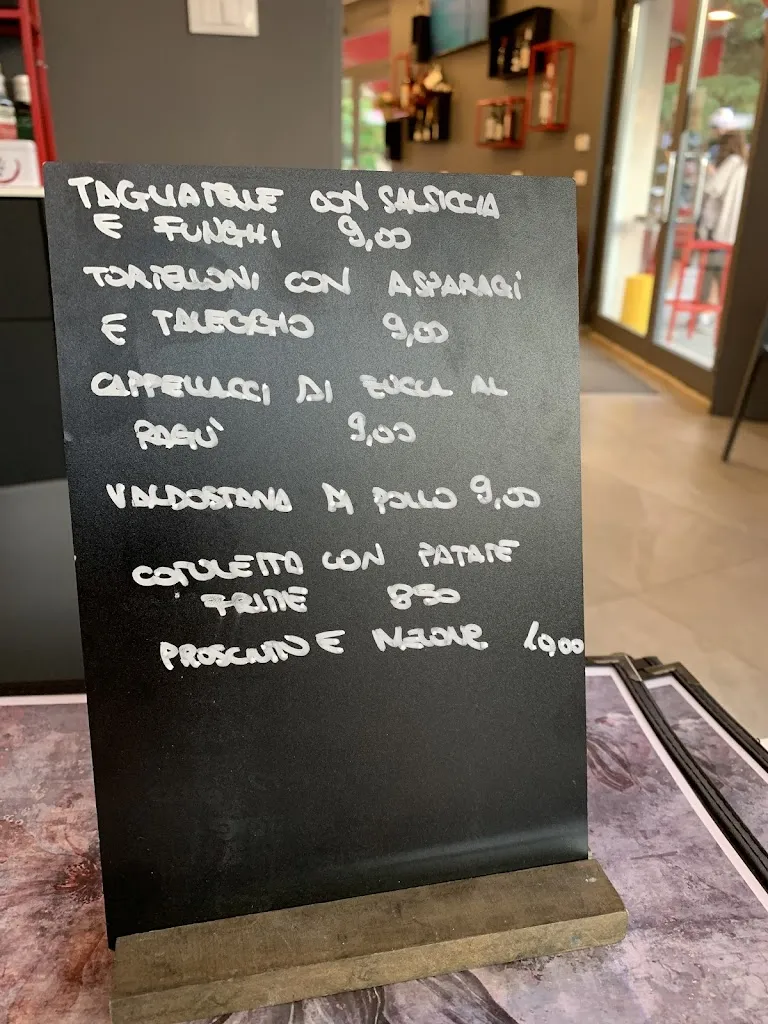 TAGLIATELLE CON SALSICCIA
E FUNGHI 9,00
TORTELLONI CON ASPARAGI
E TALEGGIO 9,00
CAPPELLACCI DI ZUCCA AL
RAGÙ 9,00
VALDOSTANA DI POLLO 9,00
COTOLETTA CON PATATE
FRITTE 850
PROSCIUTTO E MELONE 10,00